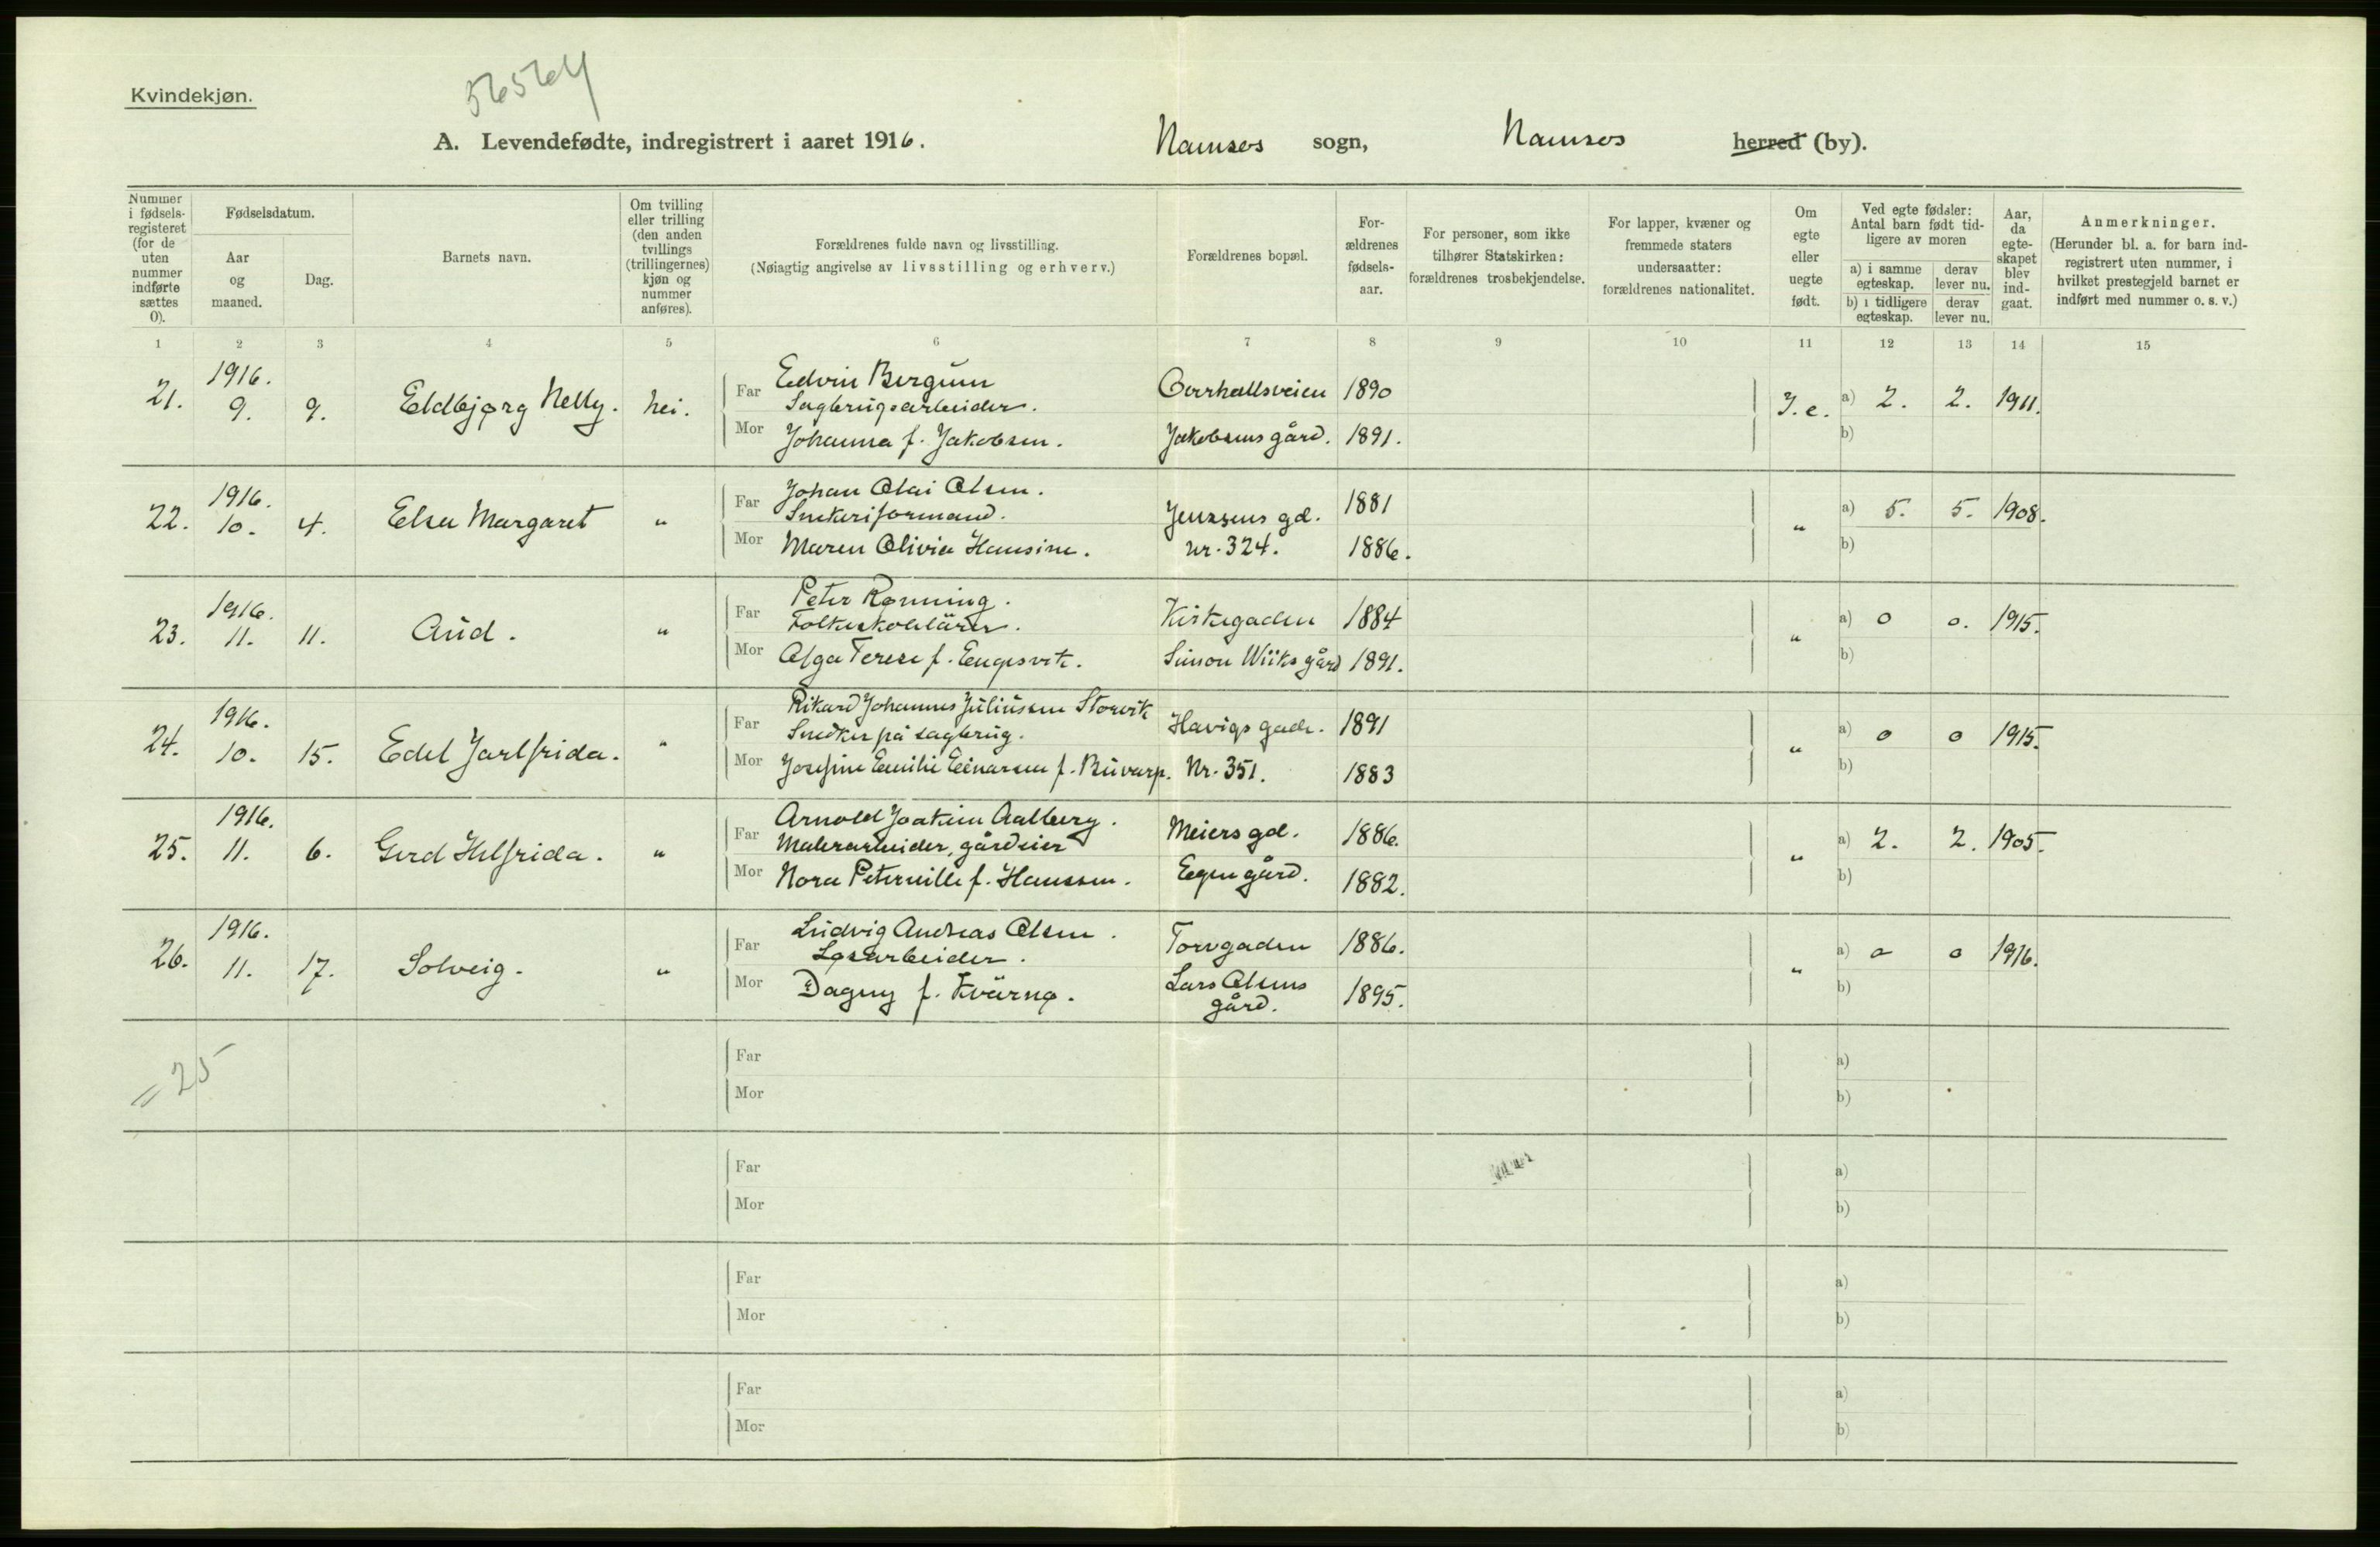 Kvindekjøn.
56564
A. Levendefødte, indregistrert i aaret 1916. Namsos sogn, Namsos herred (by).
Nummer i fødsels-registeret (for de uten nummer indførte sættes 0).
Fødselsdatum.
Aar og maaned.
Dag.
Barnets navn.
Om tvilling eller trilling (den anden tvillings (trillingernes) kjøn og nummer anføres).
Forældrenes fulde navn og livsstilling.
(Nøiagtig angivelse av livsstilling og erhverv.)
Forældrenes bopæl.
For-ældrenes fødsels-aar.
For personer, som ikke tilhører Statskirken: forældrenes trosbekjendelse.
For lapper, kvæner og fremmede staters undersaatter: forældrenes nationalitet.
Om egte eller uegte født.
Ved egte fødsler: Antal barn født tid-ligere av moren
a) i samme egteskap.
derav lever nu.
b) i tidligere egteskap.
derav lever nu.
Aar, da egte-skapet blev ind-gaat.
Anmerkninger.
(Herunder bl. a. for barn ind-registrert uten nummer, i hvilket prestegjeld barnet er indført med nummer o. s. v.)
1 2 3 4 5 6 7 8 9 10 11 12 13 14 15
21. 1916. 9. 9. Eldbjørg Nelly. nei.
Far Edvin Bergum
Sagbrugsarbeider. 1890
Mor Johanna f. Jakobsen. Jakobsens gård. 1891.
I. e. a) 2. 2. 1911.
b)
22. 1916. 10. 4. Elsa Margaret "
Far Johan Olai Olsen.
Snekeriformand. Jenssens gd. 1881
Mor Maren Olivia Hansine. nr. 324. 1886.
" a) 5. 5. 1908.
b)
23. 1916. 11. 11. Aud. "
Far Peter Rønning.
Folkeskolelärer. Kirkegaden 1884
Mor Olga Terese f. Simon Wiiks gård 1891.
" a) 0 0. 1915.
b)
24. 1916. 10. 15. Edel Jarlfrida. "
Far Rikard Johannes Juliussen Storvik
Snedker på sagbrug. Havigs gade. 1891
Mor Josefine Emilie Einarsen f. Nr. 351. 1883
" a) 0 0 1915.
b)
25. 1916. 11. 6. Gerd Helfrida. "
Far Arnold Joakim Aalberg.
Malerarbeider, gårdeier Meiers gd. 1886.
Mor Nora Peternille f. Hanssen. Egen gård. 1882.
" a) 2. 2. 1905.
b)
26. 1916. 11. 17. Solveig. "
Far Ludvig Andreas Olsen.
Løsarbeider. Torvgaden 1886.
Mor Dagny f. Kvärnø. Lars Olsens gård. 1895.
" a) 0 0 1916.
b)
= 25
Far a)
Mor b)
Far a)
Mor b)
Far a)
Mor b)
Far a)
Mor b)